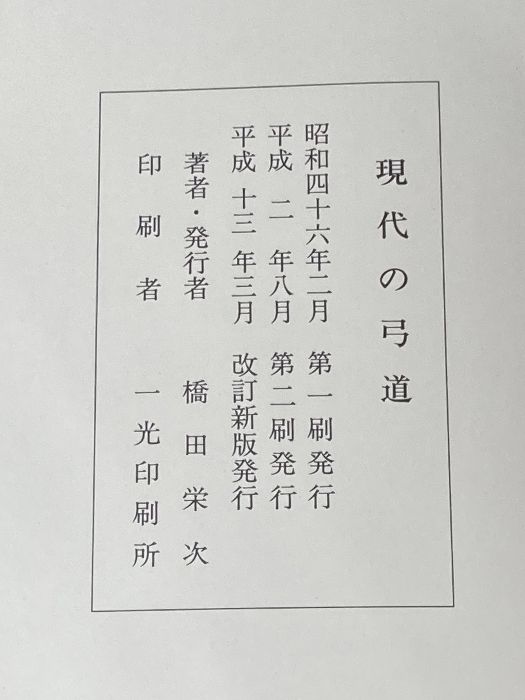 現代の弓道
昭和四十六年二月 第一刷発行
平成 二 年八月 第二刷発行
平成 十三 年三月 改訂新版発行
著者・発行者 橋田栄次
印刷者 一光印刷所